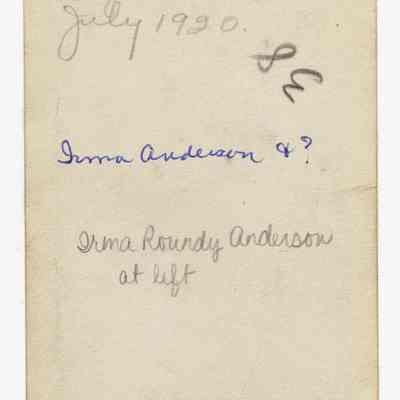 July 1920.
Irma Anderson & ?
Irma Roundy Anderson
at left